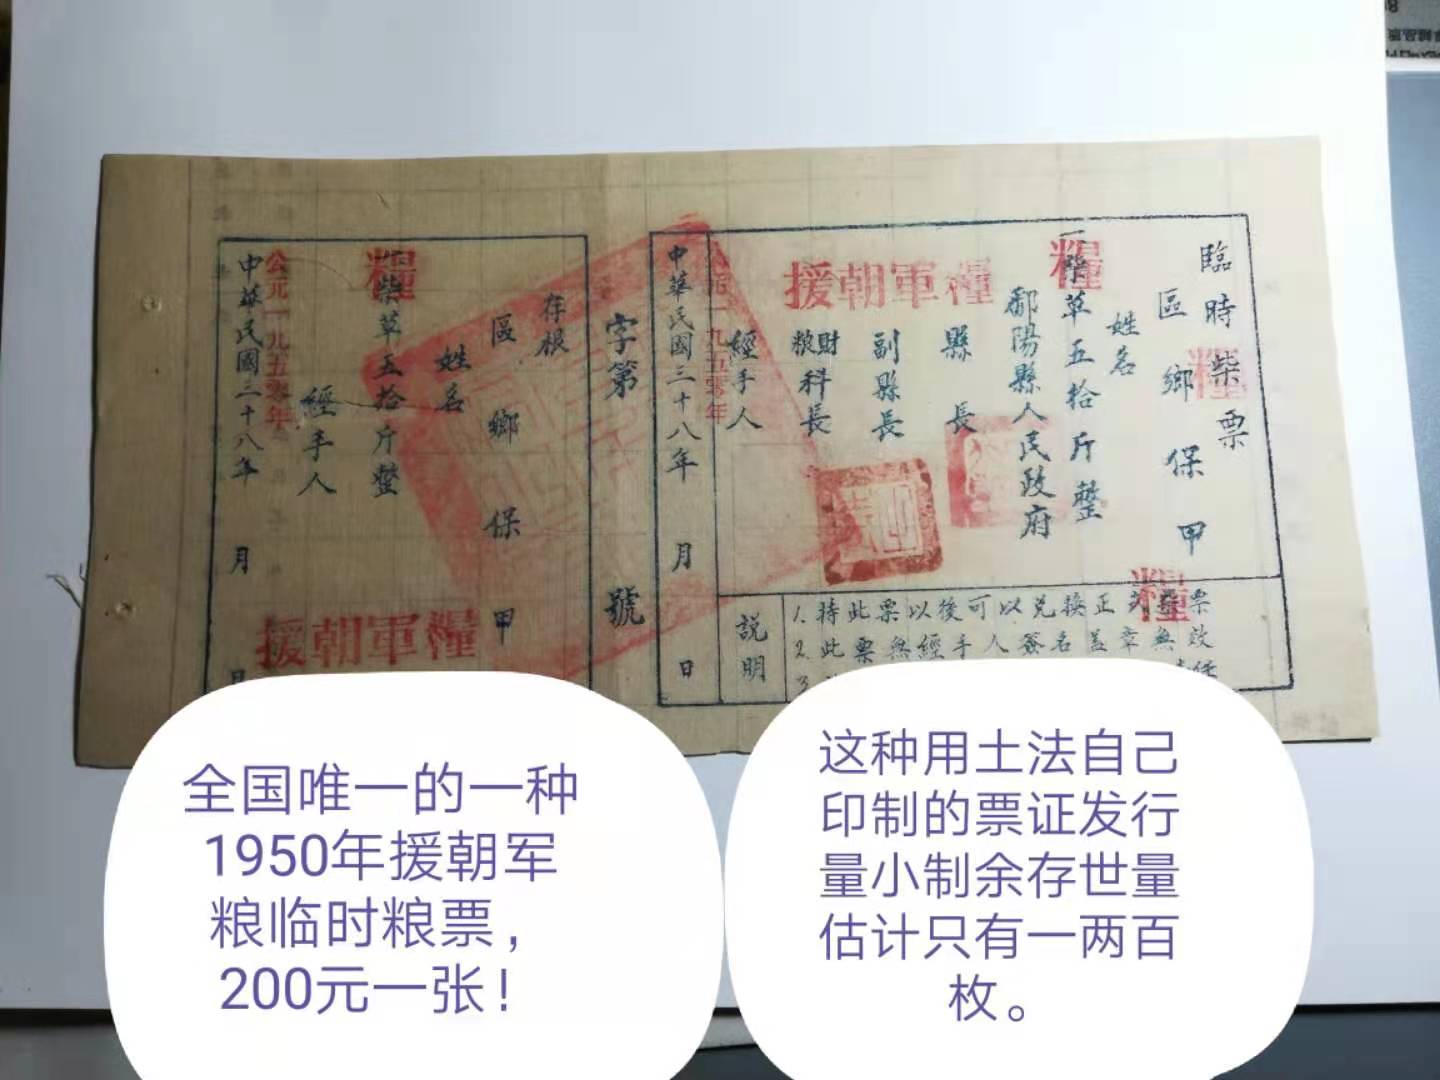 臨時柴票
糧
區鄉保甲
姓名
一柴草五拾斤整
糧
鄱陽縣人民政府
縣長
副縣長
財政科長
經手人
援朝軍糧
公元一九五零年
中華民國三十八年 月 日
説明
1. 持此票以後可以兑換正式 票
糧
2. 此票無經手人簽名盖章無效
3.
字第 號
存根
區鄉保甲
姓名
柴草五拾斤整
糧
經手人
公元一九五零年
中華民國三十八年 月 日
援朝軍糧
全国唯一的一种
1950年援朝军
粮临时粮票，
200元一张！
这种用土法自己
印制的票证发行
量小制余存世量
估计只有一两百
枚。